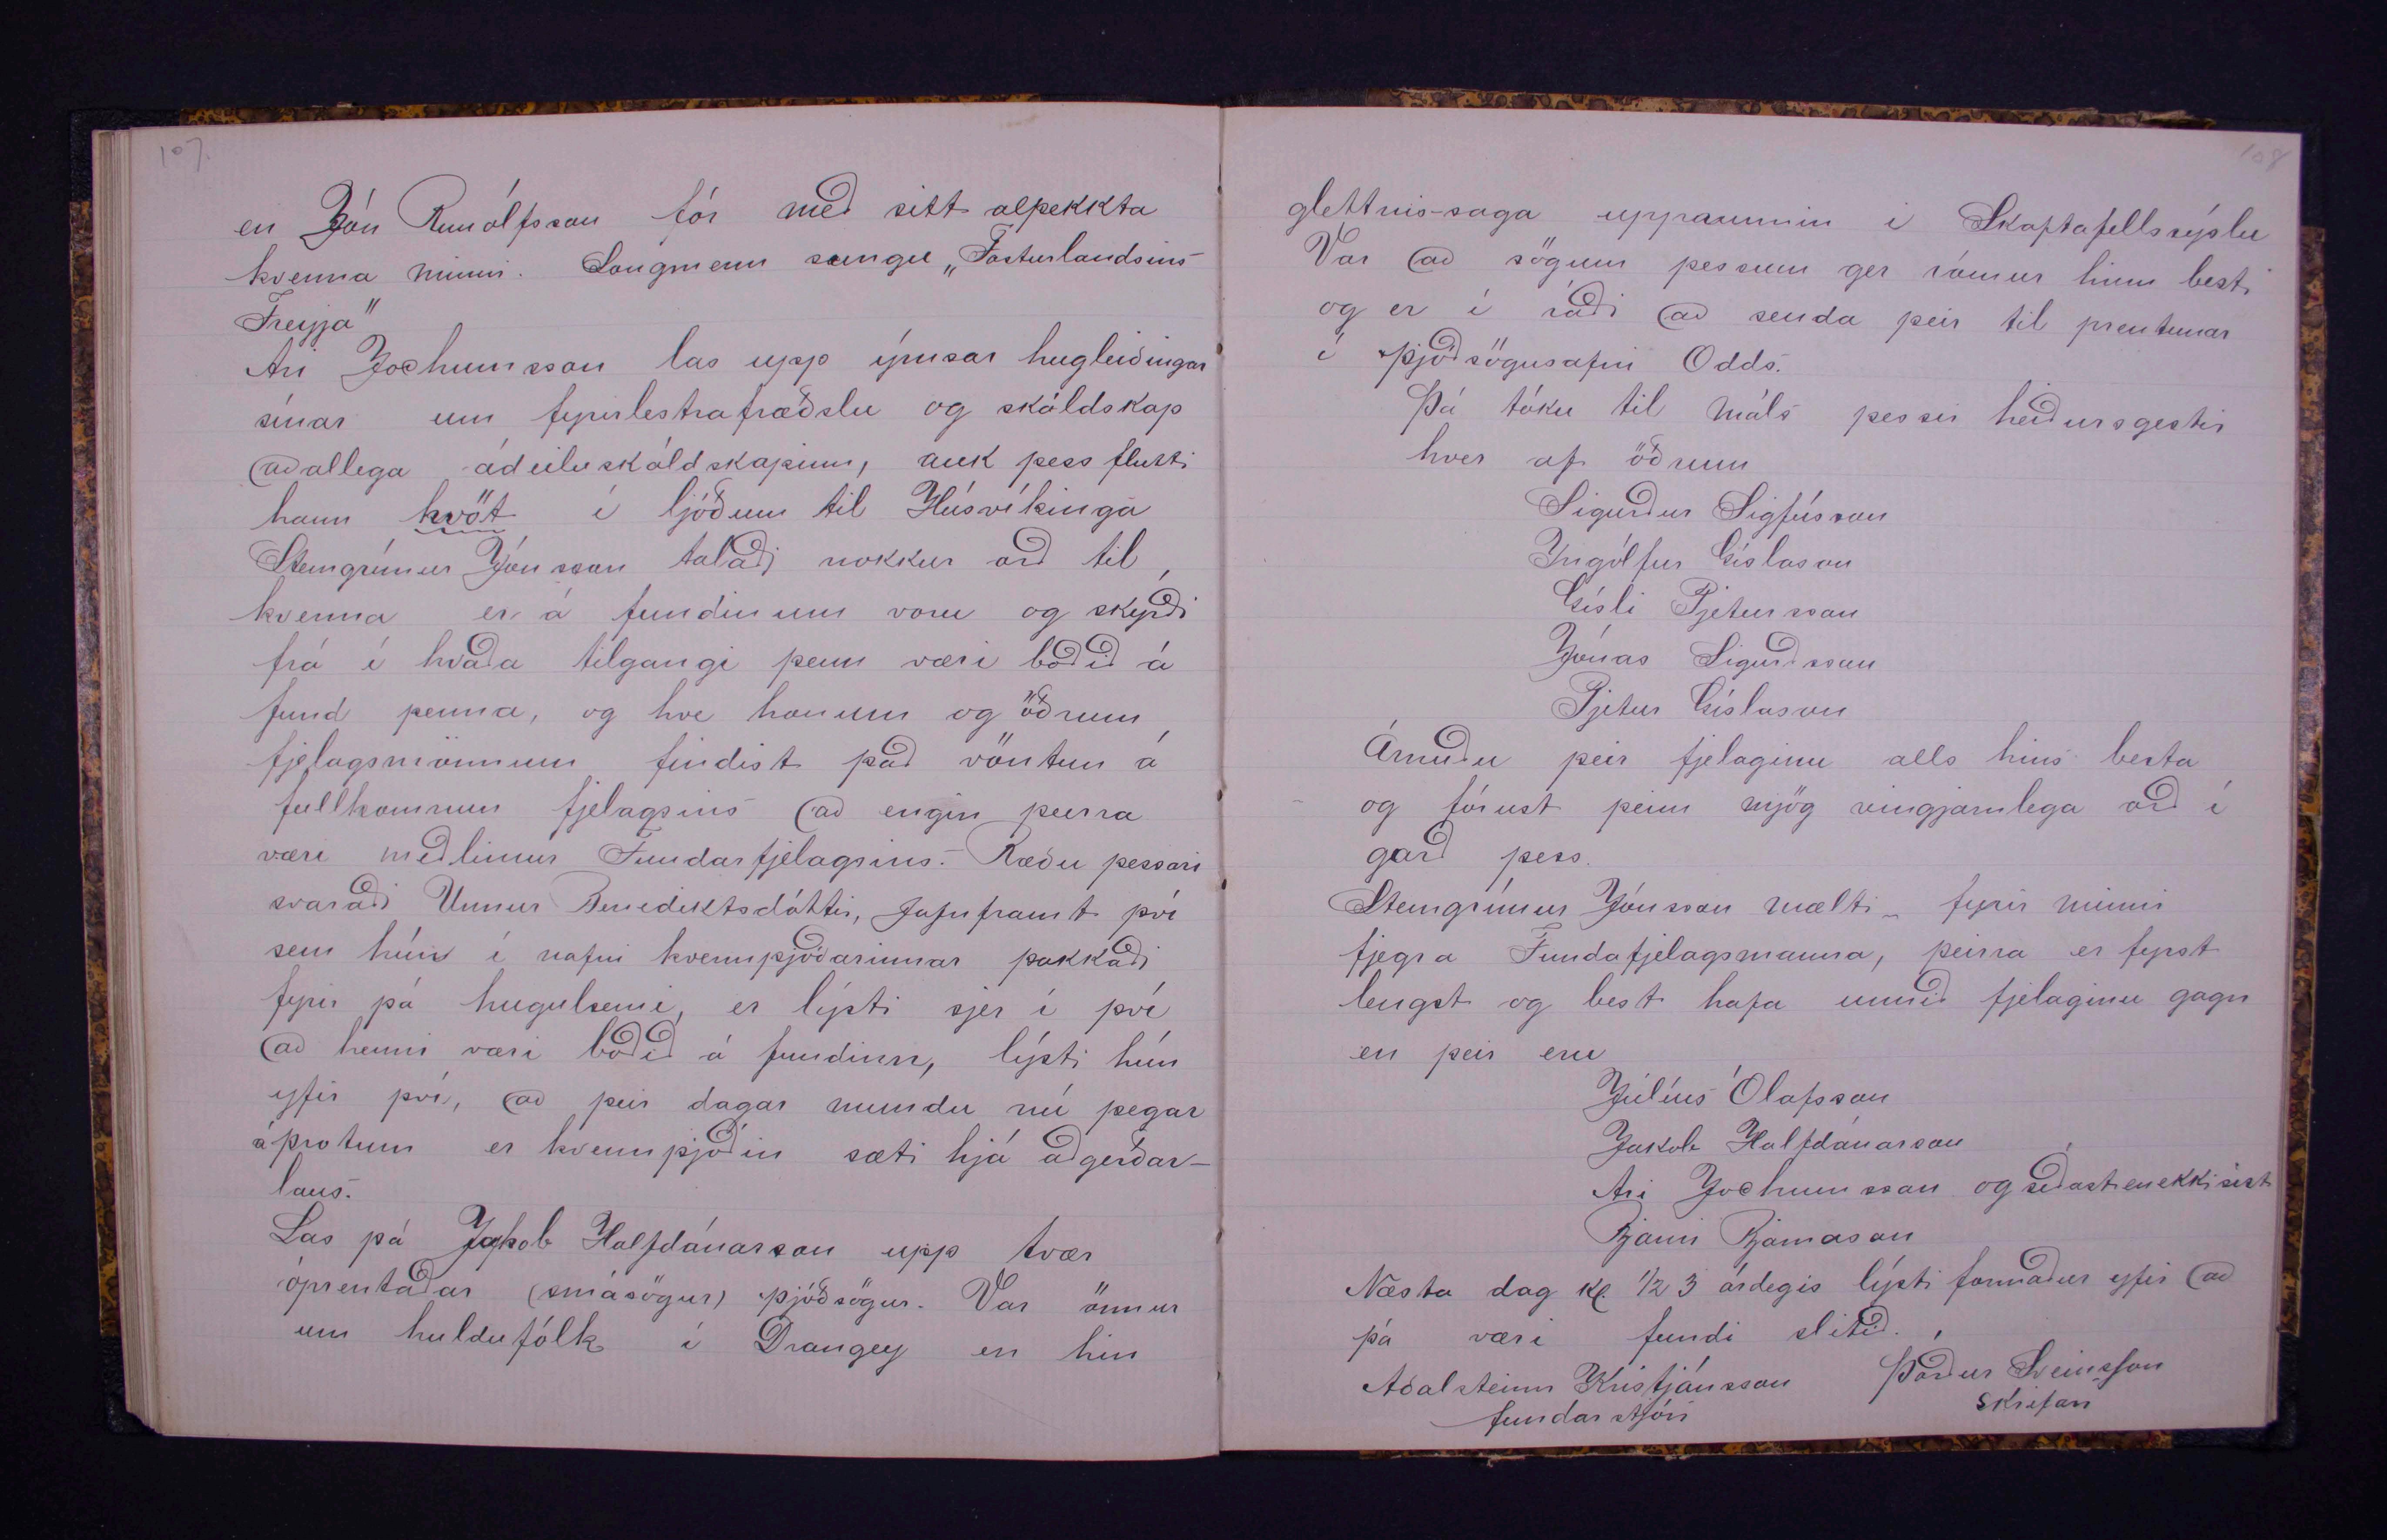 107.
en Jón Runólfsson fór með sitt alþekkta
kvenna minni. Söngmenn sungu „Fosturlandsins
Freyja"
Ari Jochumsson las upp ýmsar hugleiðingar
sínar um fyrirlestrafræðslu og skáldskap
aðallega ádeiluskáldskapinn, auk þess flutti
hann hvöt í ljóðum til Húsvíkinga
Steingrímur Jónsson talaði nokkur orð til
kvenna er á fundinum voru og skyrði
frá í hvaða tilgangi þeim væri boðið á
fund þenna, og hve honum og öðrum
fjelagsmönnum findist það vöntun á
fullkomnun fjelagsins að engin þeirra
væri meðlimur Fundarfjelagsins. Ræðu þessari
svaraði Unnur Benediktsdóttir, Jafnframt því
sem hún í nafni kvennþjóðarinnar þakkaði
fyrir þá hugulsemi, er lýsti sjer í því
að henni væri boðið á fundinn, lýsti hún
yfir því, að þeir dagar mundu nú þegar
á þrotum er kvennþjóðin sæti hjá aðgerðar-
laus.
Las þá Jakob Halfdánarson upp tvær
óprentaðar (smásögur) þjóðsögur. Var önnur
um huldufólk í Drangey en hin
108
glettnis-saga upprunnin í Skaptafellssýslu
Var að sögum þessum ger rómur hinn besti
og er í ráði að senda þeir til prentunar
í þjóðsögusafni Odds.
Þá tóku til máls þessir heiðursgestir
hver af öðrum
Sigurður Sigfússon
Yngólfur Gíslason
Gísli Pjetursson
Jónas Sigurðsson
Pjetur Gíslason
Árnuðu þeir fjelaginu alls hins besta
og fórust þeim mjög vingjarnlega orð í
garð þess.
Steingrímur Jónsson mælti fyrir minni
fjegra Fundafjelagsmanna, þeirra er fyrst
lengst og best hafa unnið fjelaginu gagn
en þeir eru
Júlíus Ólafsson
Jakob Halfdánarson
Ari Jochumsson og síðast en ekki síst
Bjarni Bjarnason
Næsta dag kl 1/2 3 árdegis lýsti formaður yfir að
þá væri fundi slitið.
Aðalsteinn Kristjánsson Þórður Sveinsson
fundarstjóri skrifari